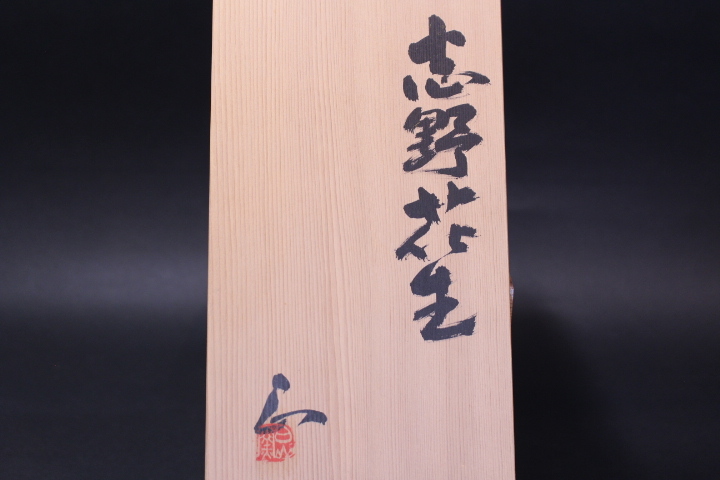 志野花生